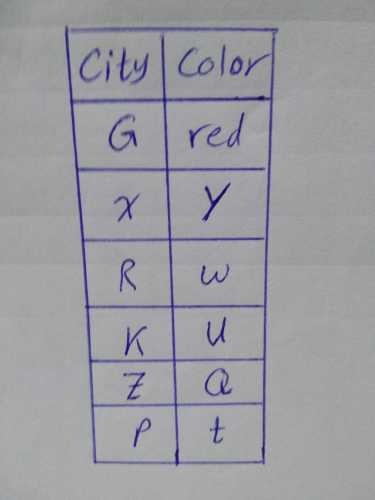 City Color
G red
X Y
R W
K U
Z Q
P t